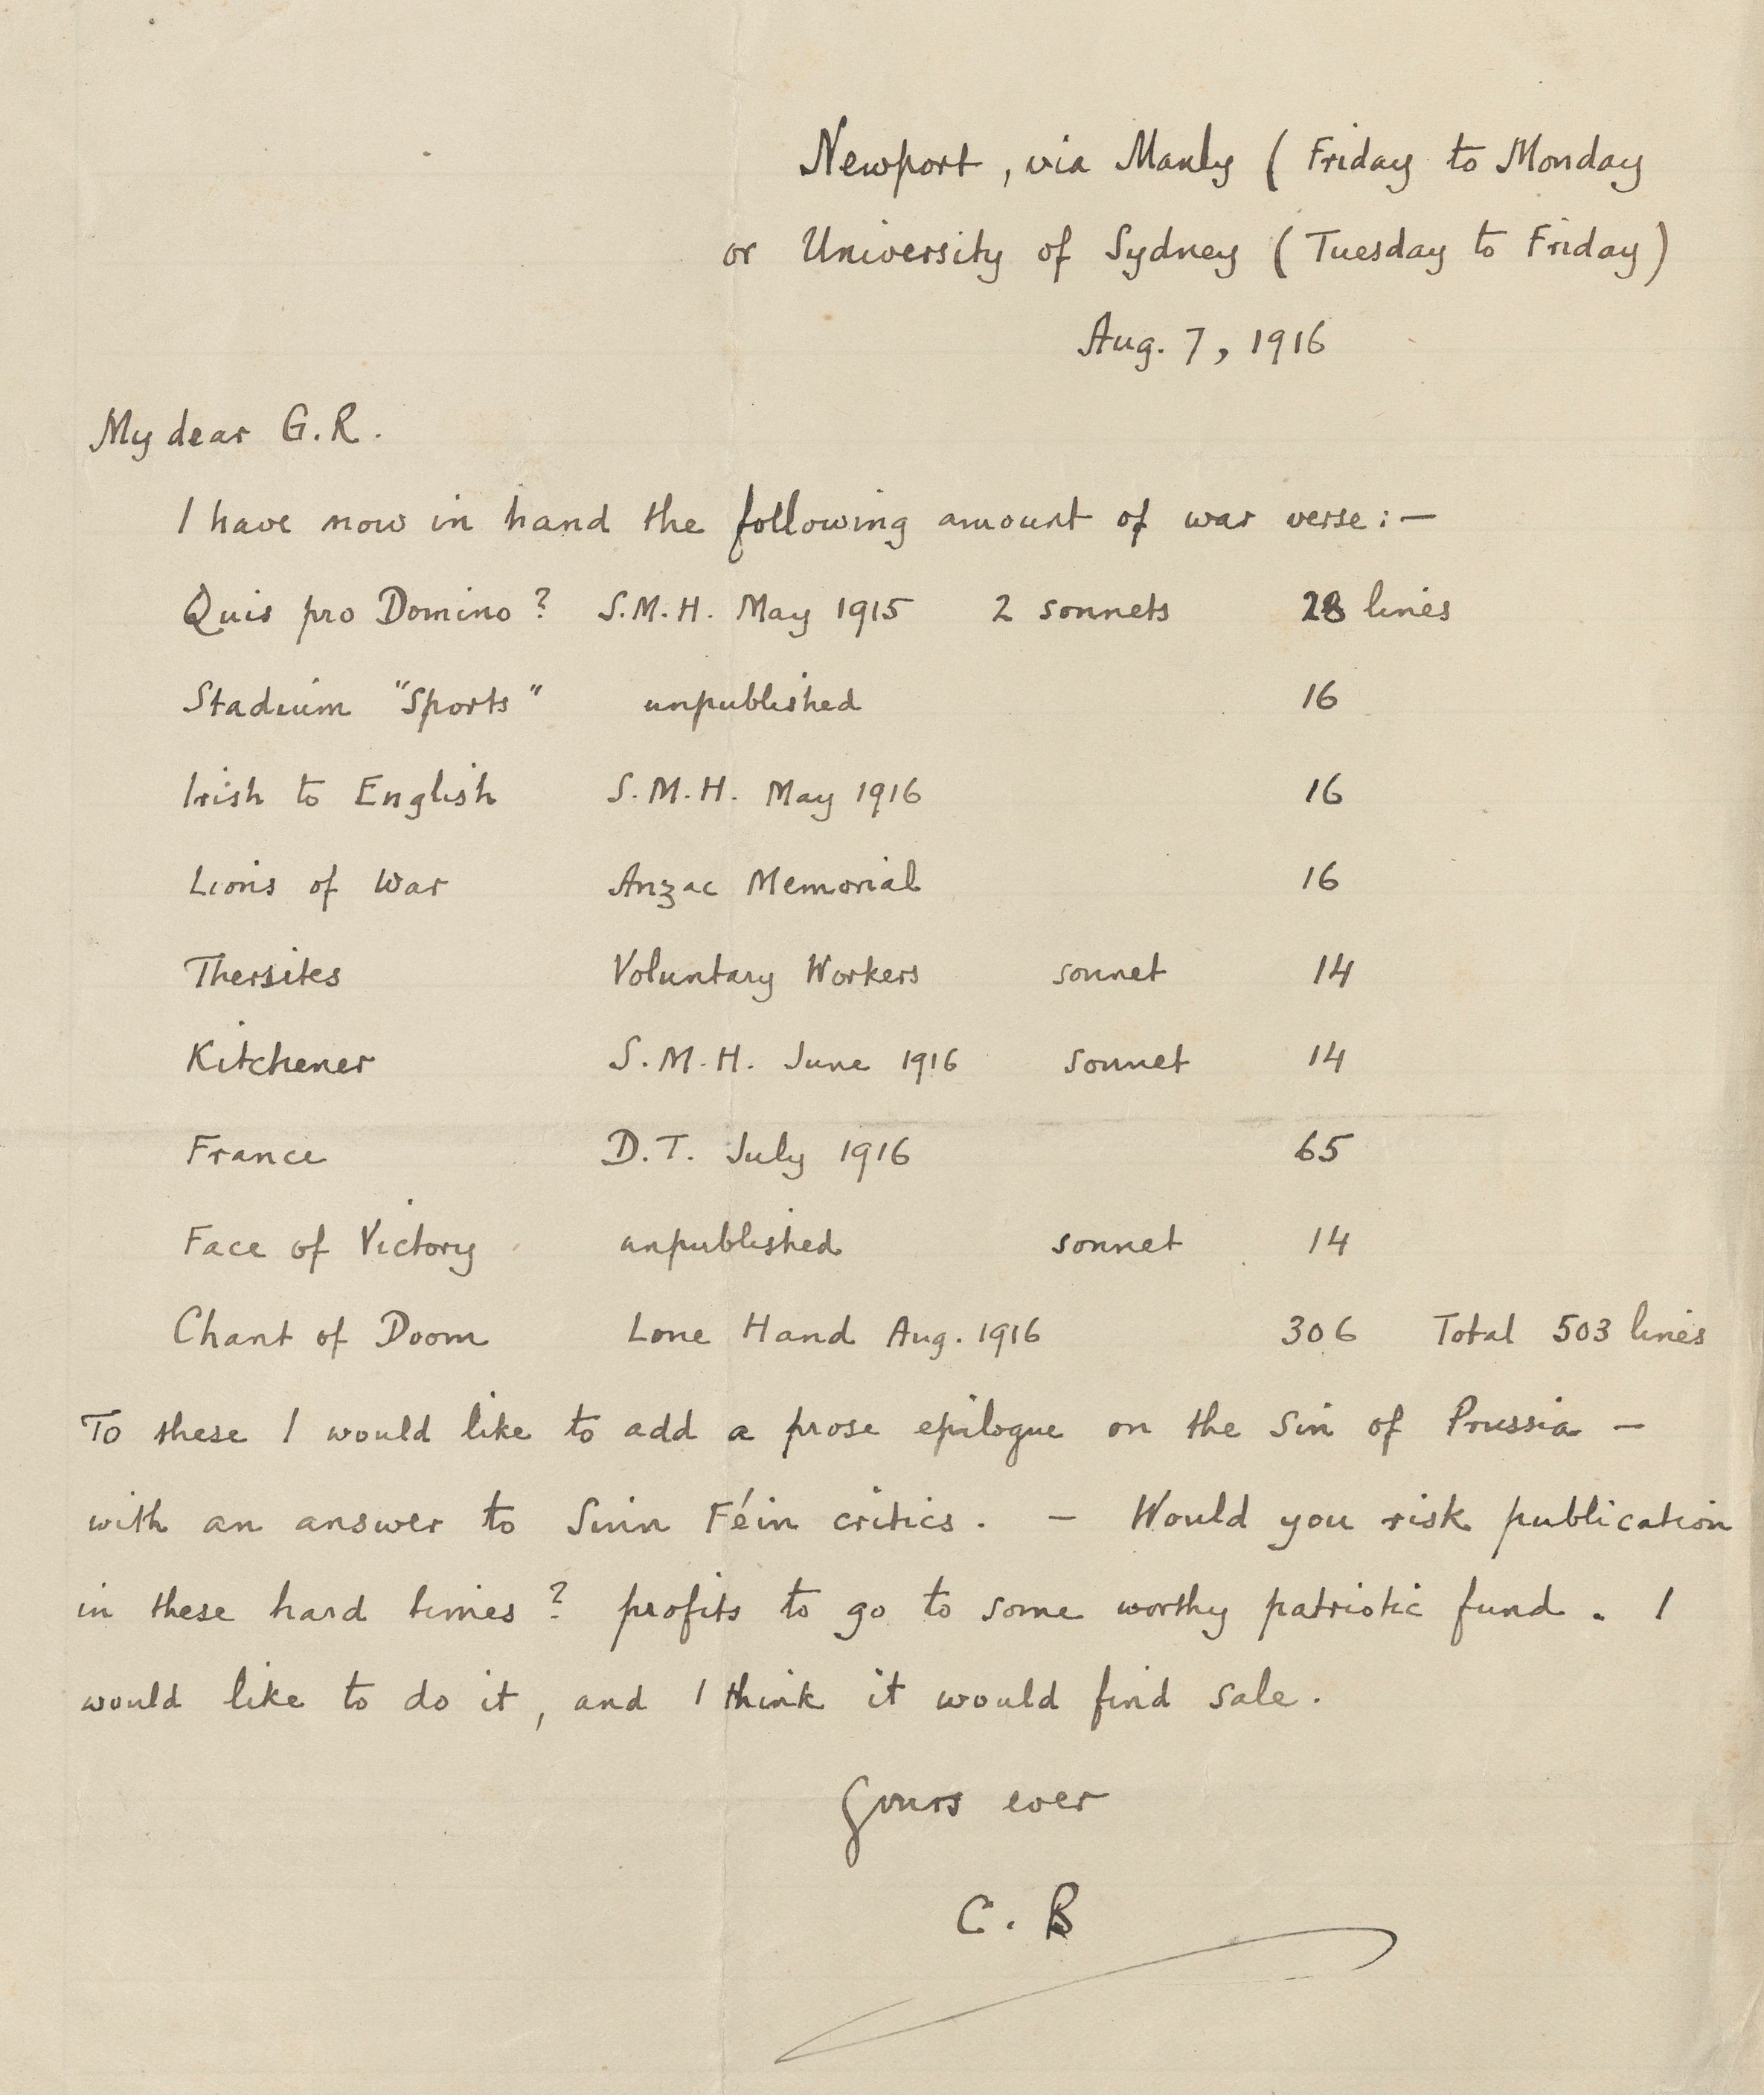 Newport, via Manly (Friday to Monday
or University of Sydney (Tuesday to Friday)
Aug. 7, 1916
My dear G.R.
I have now in hand the following amount of war verse:—
Quis pro Domino? S.M.H. May 1915 2 sonnets 28 lines
Stadium "Sports" unpublished 16
Irish to English S.M.H. May 1916 16
Lions of War Anzac Memorial 16
Thersites Voluntary Workers sonnet 14
Kitchener S.M.H. June 1916 sonnet 14
France D.T. July 1916 65
Face of Victory unpublished sonnet 14
Chant of Doom Lone Hand Aug. 1916 306 Total 503 lines
To these I would like to add a prose epilogue on the Sin of Prussia —
with an answer to Sinn Féin critics. — Would you risk publication
in these hard times? profits to go to some worthy patriotic fund. I
would like to do it, and I think it would find sale.
Yours ever
C. B